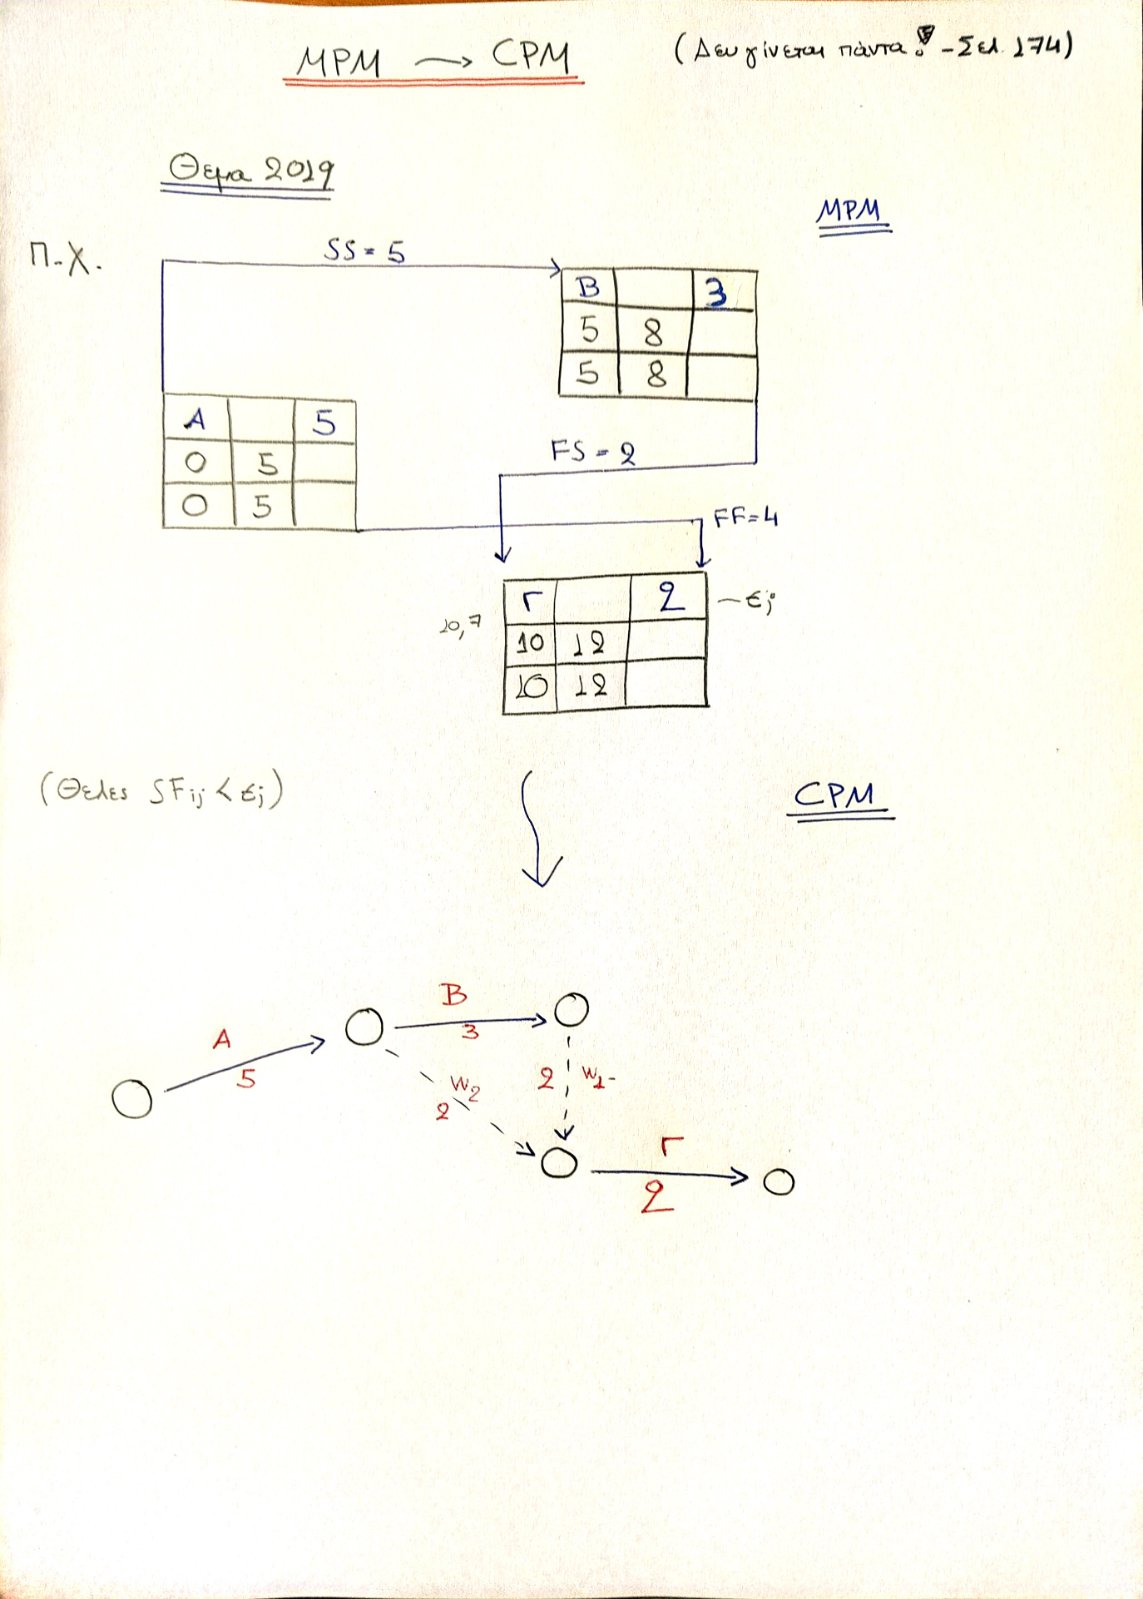 MPM → CPM (Δεν γίνεται πάντα! - Σελ. 174)
Θεμα 2019
MPM
π.χ.
SS = 5
B 3
5 8
5 8
A 5
0 5
0 5
FS = 2
FF=4
Γ 2 - tj
10,7
10 12
10 12
(Θελες SFij < tj)
CPM
B
3
A
5
W2
2
2 W1
Γ
2